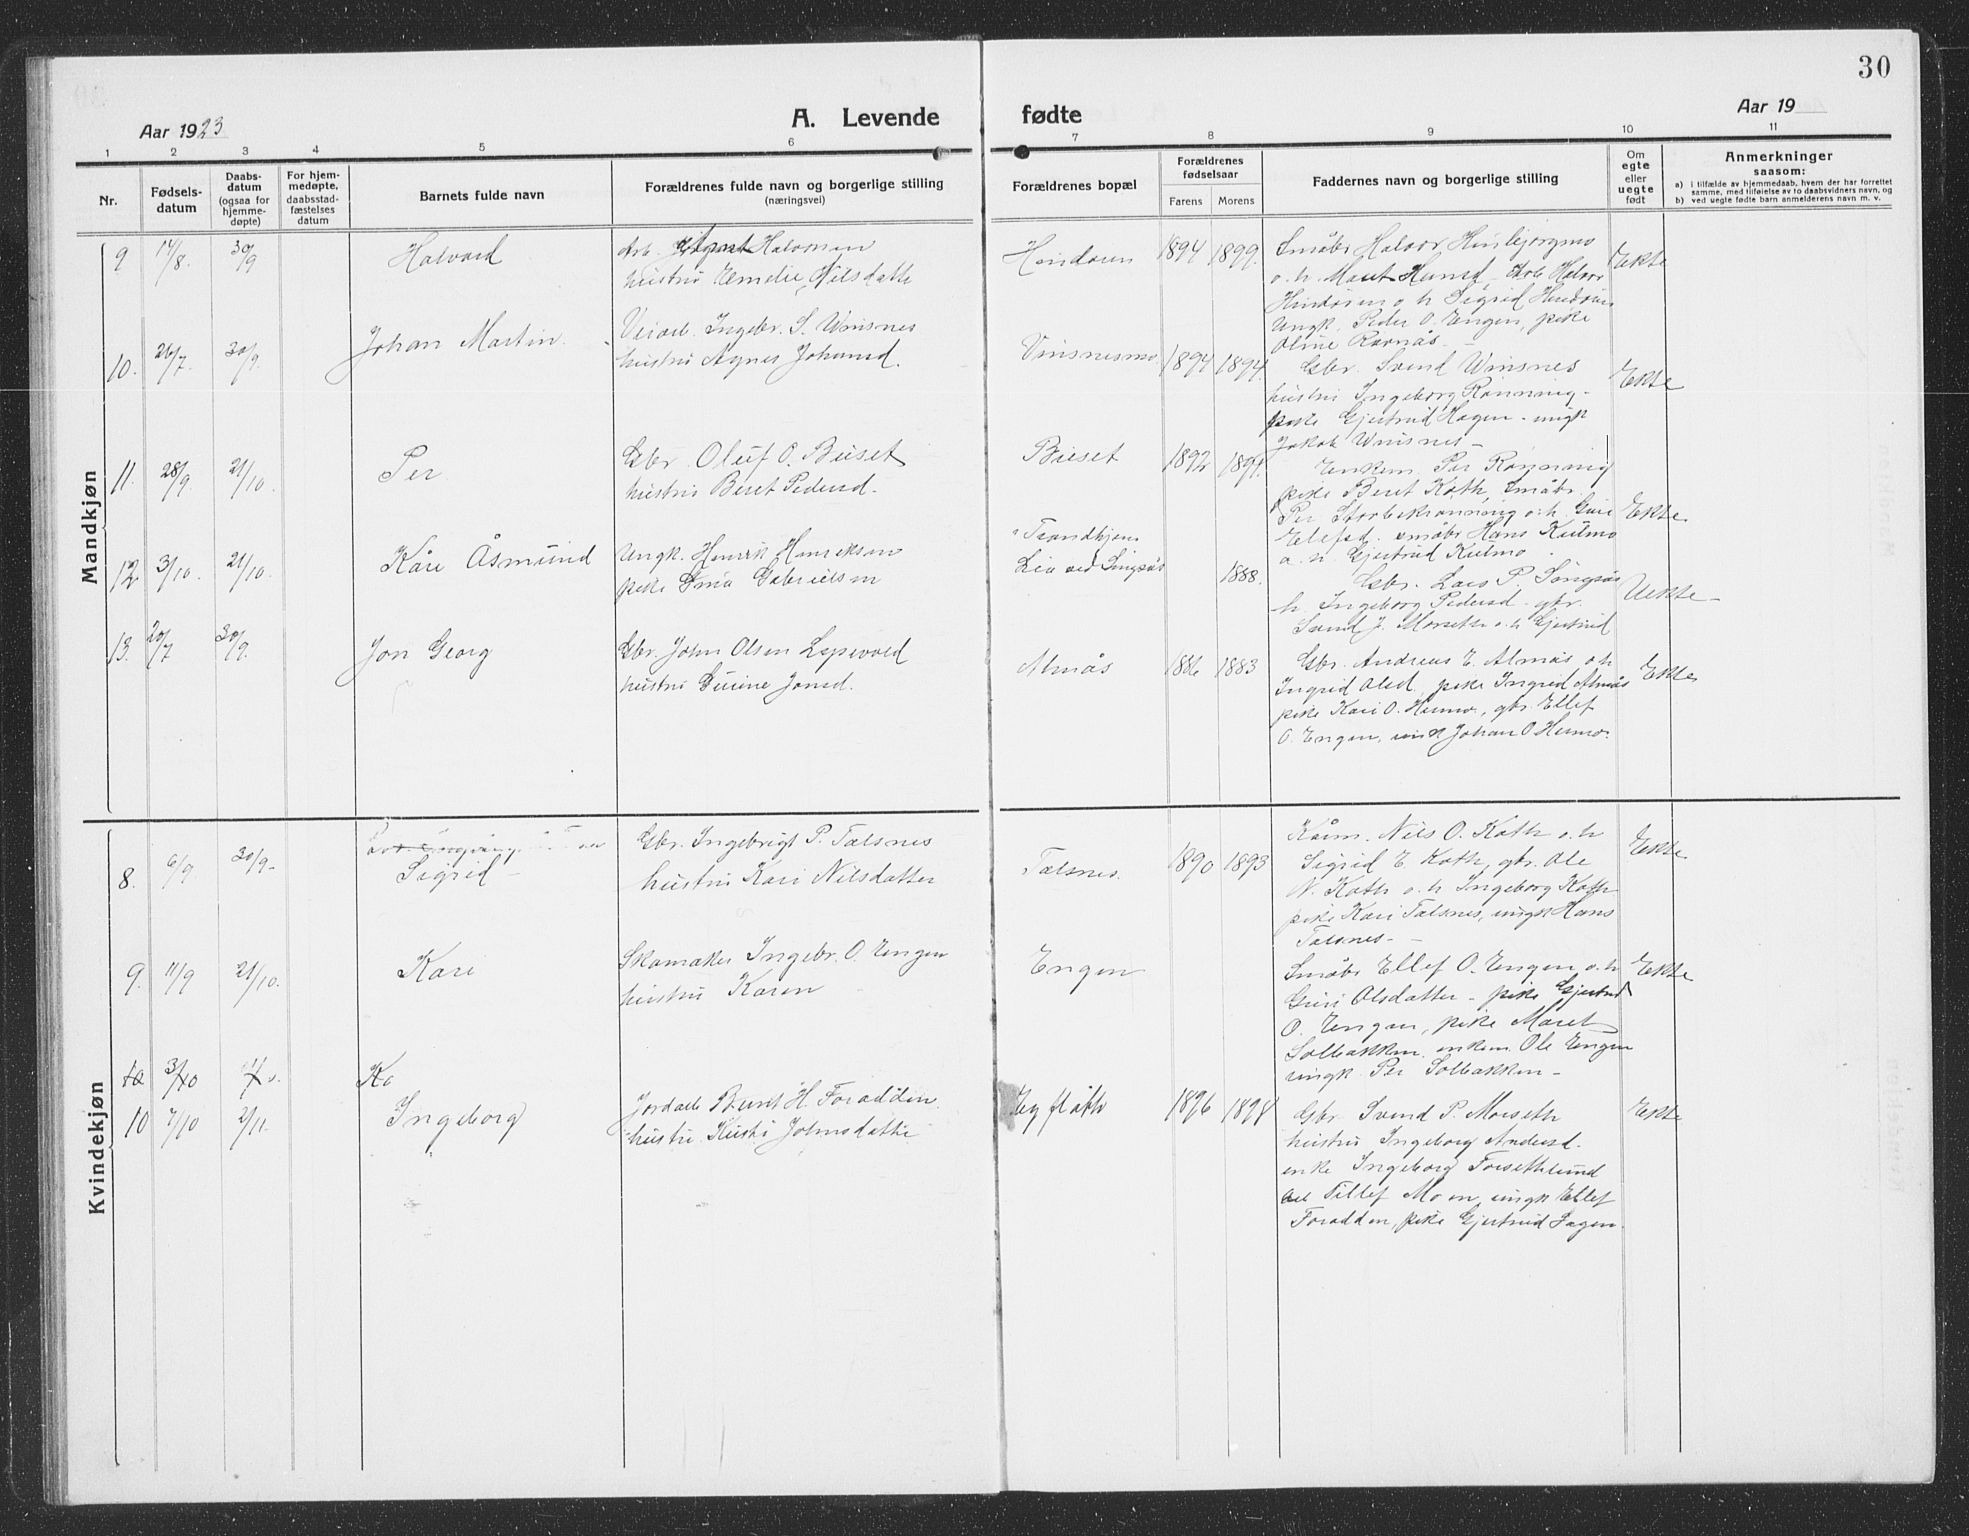 30
Aar 1923
A. Levende
fødte
Aar 19
1 2 3 4 5 6
7 8 9 10 11
Nr.
Fødsels-
datum
Daabs-
datum
(ogsaa for
hjemme-
døpte)
For hjem-
medøpte,
daabsstad-
fæstelses
datum
Barnets fulde navn
Forældrenes fulde navn og borgerlige stilling
(næringsvei)
Forældrenes bopæl
Forældrenes
fødselsaar
Farens Morens
Faddernes navn og borgerlige stilling
Om
egte
eller
uegte
født
Anmerkninger
saasom:
a) i tilfælde av hjemmedaab, hvem der har forrettet
samme, med tilføielse av to daabsvidners navn, og
b) ved uegte fødte barn anmelderens navn m. v.
Mandkjøn
9 14/8. 30/9
Halvard
Halvorsen
hustru Emelie Nilsdatte
Hindoren
1894 1899.
Småbr Halvor Hinbjørgmo
o. h. Marit Hansd. Arb Halvor
Hindoren o h Sigrid Hindoren
Ungk. Peder O. Engen, pike
Oline Ramås.
Ekte
10. 26/7. 30/9.
Johan Martin
Veiarb. Ingebr. S. Winsnes
hustru Agnes Johansd.
Vinsnesmo
1894 1894.
Gbr. Svend Winsnes
hustru Ingeborg Rønning -
pike Gjertrud Hagen - ungk
Jakob Winsnes -
Ekte
11. 28/9. 21/10.
Per
Gbr. Oluf O. Buset
hustru Beret Pedersd.
Buset
1892 1891.
Enkem. Per Rønning
pike Beret Koth, småbr.
Per Storbekrønning o. h. Guri
Elefsd. småbr Hans Kulmo
o. h. Gjertrud Kulmo
Ekte
12 3/10. 21/10.
Kåre Åsmund
Ungk. Henrik Henriksen
pike Gabrielsen
Trondhjem
Lien ved Singsås
1888.
Gbr. Lars P. Singsås
h. Ingeborg Pedersd - gbr.
Svend J. Morseth o. h Gjertrud
Uekte -
13. 20/7 30/9.
Jon Georg
Gbr. John Olsen
hustru Guiine Jonsd.
Almås
1886 1883
Gbr. Andreas E. Almås o h
Ingrid Olsd, pike Ingrid Almås
pike Kari O. Hemo, gbr. Ellef
O. Engen, ungk Johan O Hemo.
Ekte
Kvindekjøn
8. 6/9 30/9-
Sigrid -
Gbr. Ingebrigt P. Talsnes
hustru Kari Nilsdatter
Talsnes.
1890 1893
Nils O. Koth o. h
Sigrid E Koth, gbr. Ole
N. Koth o. h Ingeborg Koth
pike Kari Talsnes, ungk Hans
Talsnes -
Ekte
9. 11/9 21/10.
Kari
Skomaker Ingebr. O. Engen
hustru Karen
Engen
Småbr Ellef O. Engen o. h
Guri Olsdatter - pike Gjertrud
O. Engen, pike Maret
Solbakken, enkem. Ole Engen
ungk. Per Solbakken -
Ekte
10 3/10
Ka
10 7/10 2/11.
Ingeborg
Jordarb Bernt H. Foradden
hustru Johnsdatter
1896 1898
Gbr. Svend P. Morseth
hustru Ingeborg Andersd.
enke Ingeborg Forsethlund
Tillef Moen, ungk Ellef
Foradden, pike Gjertrud Hagen.
Ekte